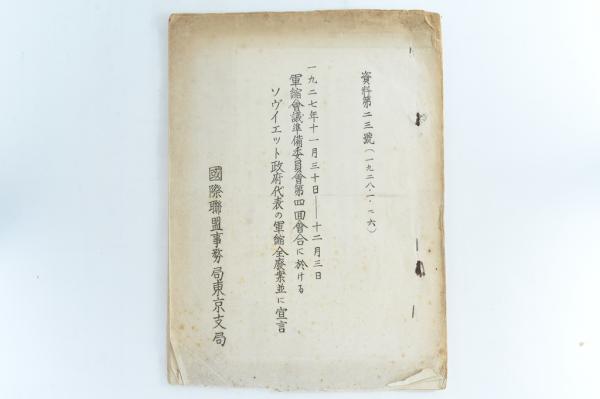 資料第二三號(一九二八・一・二六)
一九二七年十一月三十日――十二月三日
軍縮會議準備委員會第四回會合に於ける
ソヴイエット政府代表の軍縮全廢案並に宣言
國際聯盟事務局東京支局